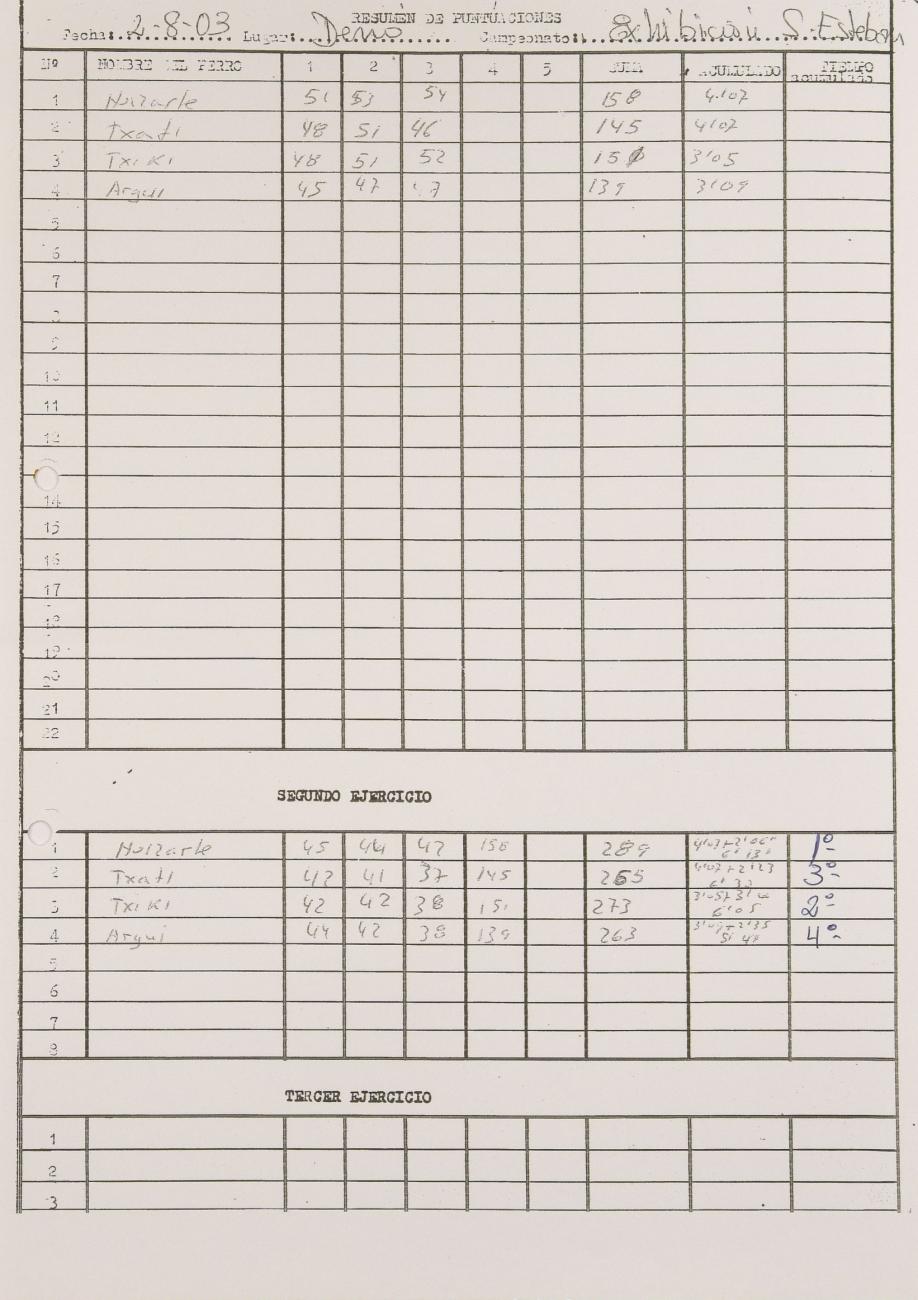 RESUMEN DE PUNTUACIONES
Fecha:..2-8-03.......... Lugar:...Derio...... Campeonato:...Exhibición S. Esteban
Nº NOMBRE DEL PERRO 1 2 3 4 5 SUMA ACUMULADO TIEMPO acumulado
1 Noizarte 51 53 54 158 4'07
2 Txati 48 51 46 145 4'07
3 TxiKi 48 51 52 151 3'05
4 Argui 45 47 47 139 3'09
5
6
7
8
9
10
11
12
14
15
16
17
18
19
20
21
22
SEGUNDO EJERCICIO
1 Noizarte 45 44 42 158 289 4'07+2'06" 6'13" 1º
2 Txati 42 41 37 145 265 4'07+2'23 6'30 3º
3 TxiKi 42 42 38 151 273 3'05+3'00 6'05 2º
4 Argui 44 42 38 139 263 3'09+2'35 5'44 4º
5
6
7
8
TERCER EJERCICIO
1
2
3